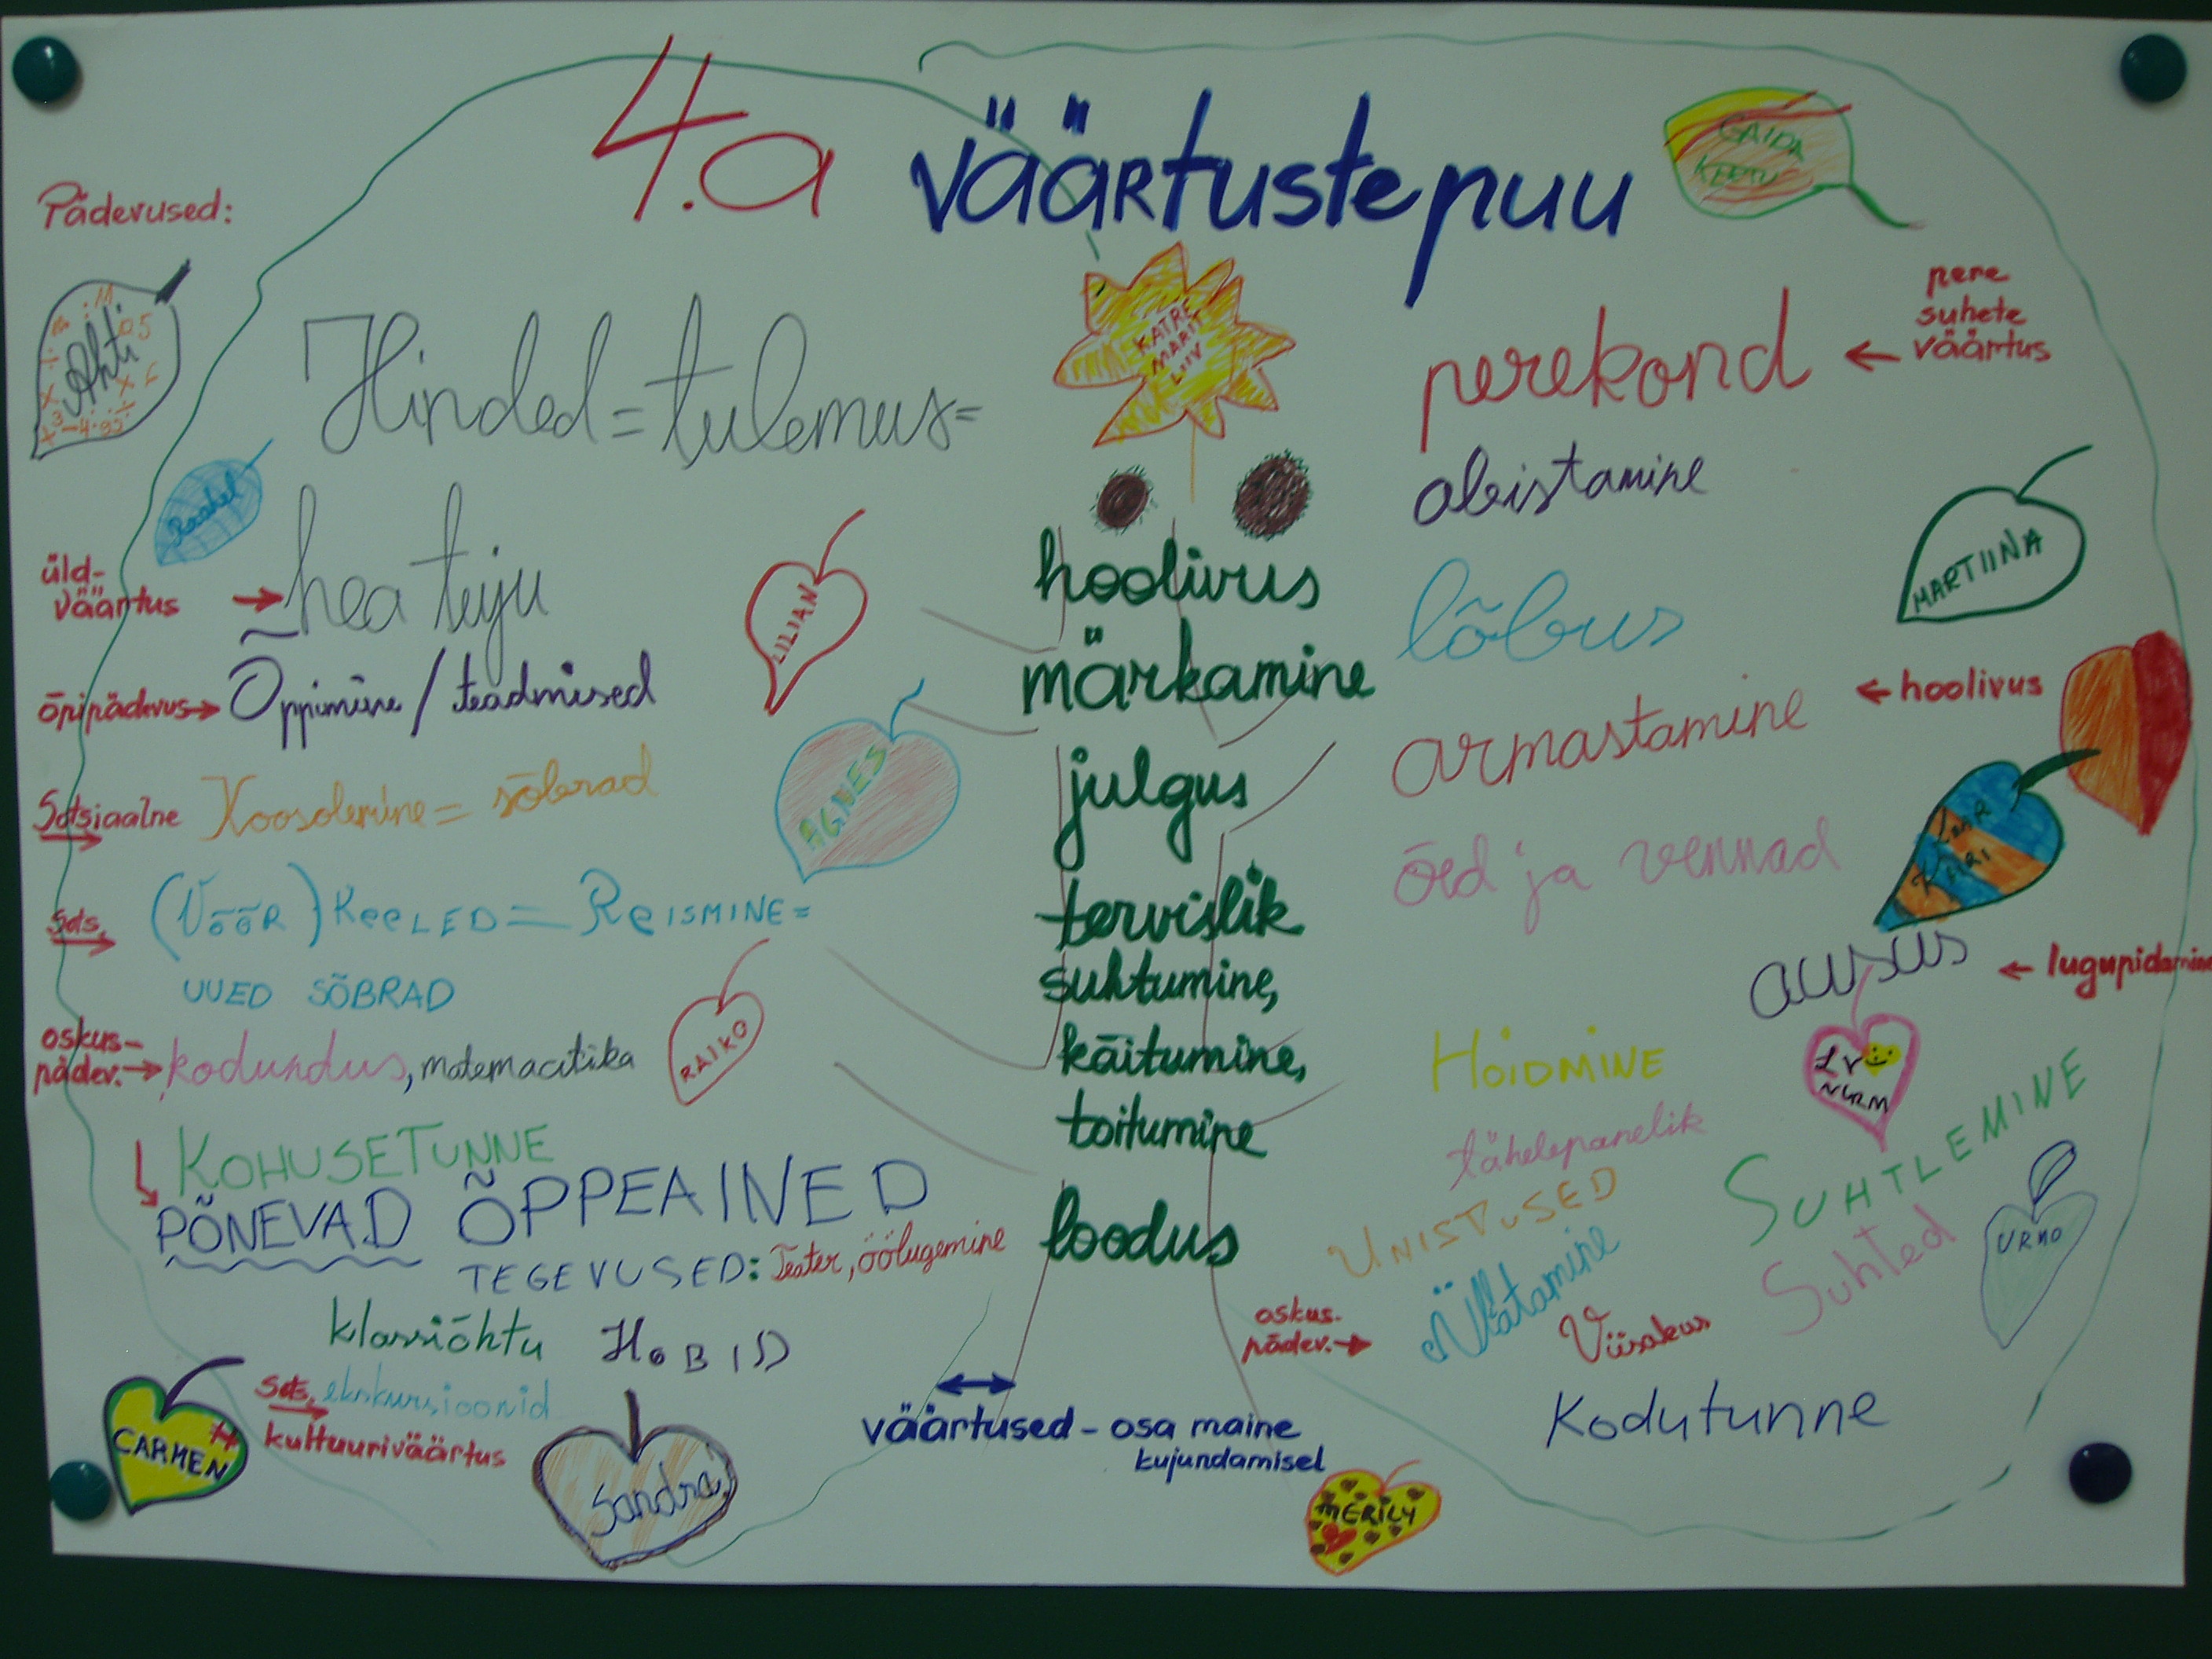 4.a väärtustepuu
GAIDA
KEETU
Pädevused:
Ahti
Hinded=tulemus=
hea tuju
Raahel
üld-
väärtus
õpipädevus
Õppimine/teadmised
Sotsiaalne
Koosolemine= sõbrad
sots.
(VÕÕR) KEELED = REISMINE =
UUED SÕBRAD
oskus-
pädev.
kodundus, matemaatika
KOHUSETUNNE
PÕNEVAD ÕPPEAINED
TEGEVUSED: Teater, öölugemine
klassiõhtu HOBID
sots. ekskursioonid
kultuuriväärtus
CARMEN
Sandra
LILIAN
AGNES
RAIKO
KATRE
MARIT
LIIV
hoolivus
märkamine
julgus
tervislik
suhtumine,
käitumine,
toitumine
loodus
väärtused - osa maine
kujundamisel
MERILY
perekond
pere
suhete
väärtus
abistamine
MARTIINA
lõbus
armastamine
hoolivus
õed ja vennad
ausus
lugupidamine
HOIDMINE
tähelepanelik
SUHTLEMINE
UNISTUSED
Suhted
URMO
oskus-
pädev.
Üllatamine
Viisakus
Kodutunne